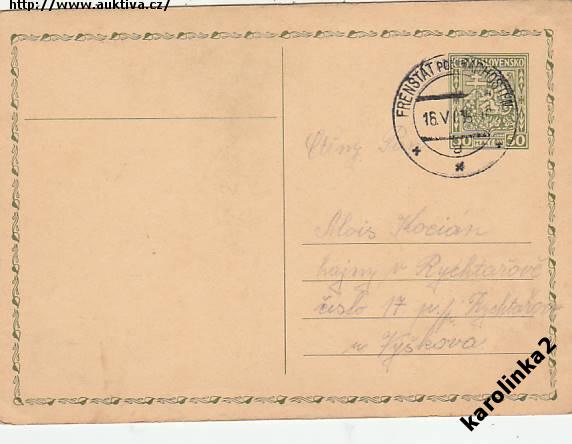 http://www.auktiva.cz/
FRENŠTÁT POD RADHOŠTĚM
16.V
50 50
Ctěný
Alois Kocián
hajný v Rychtářově
číslo 17 p.p. Rychtářov
u Vyškova
karolinka2